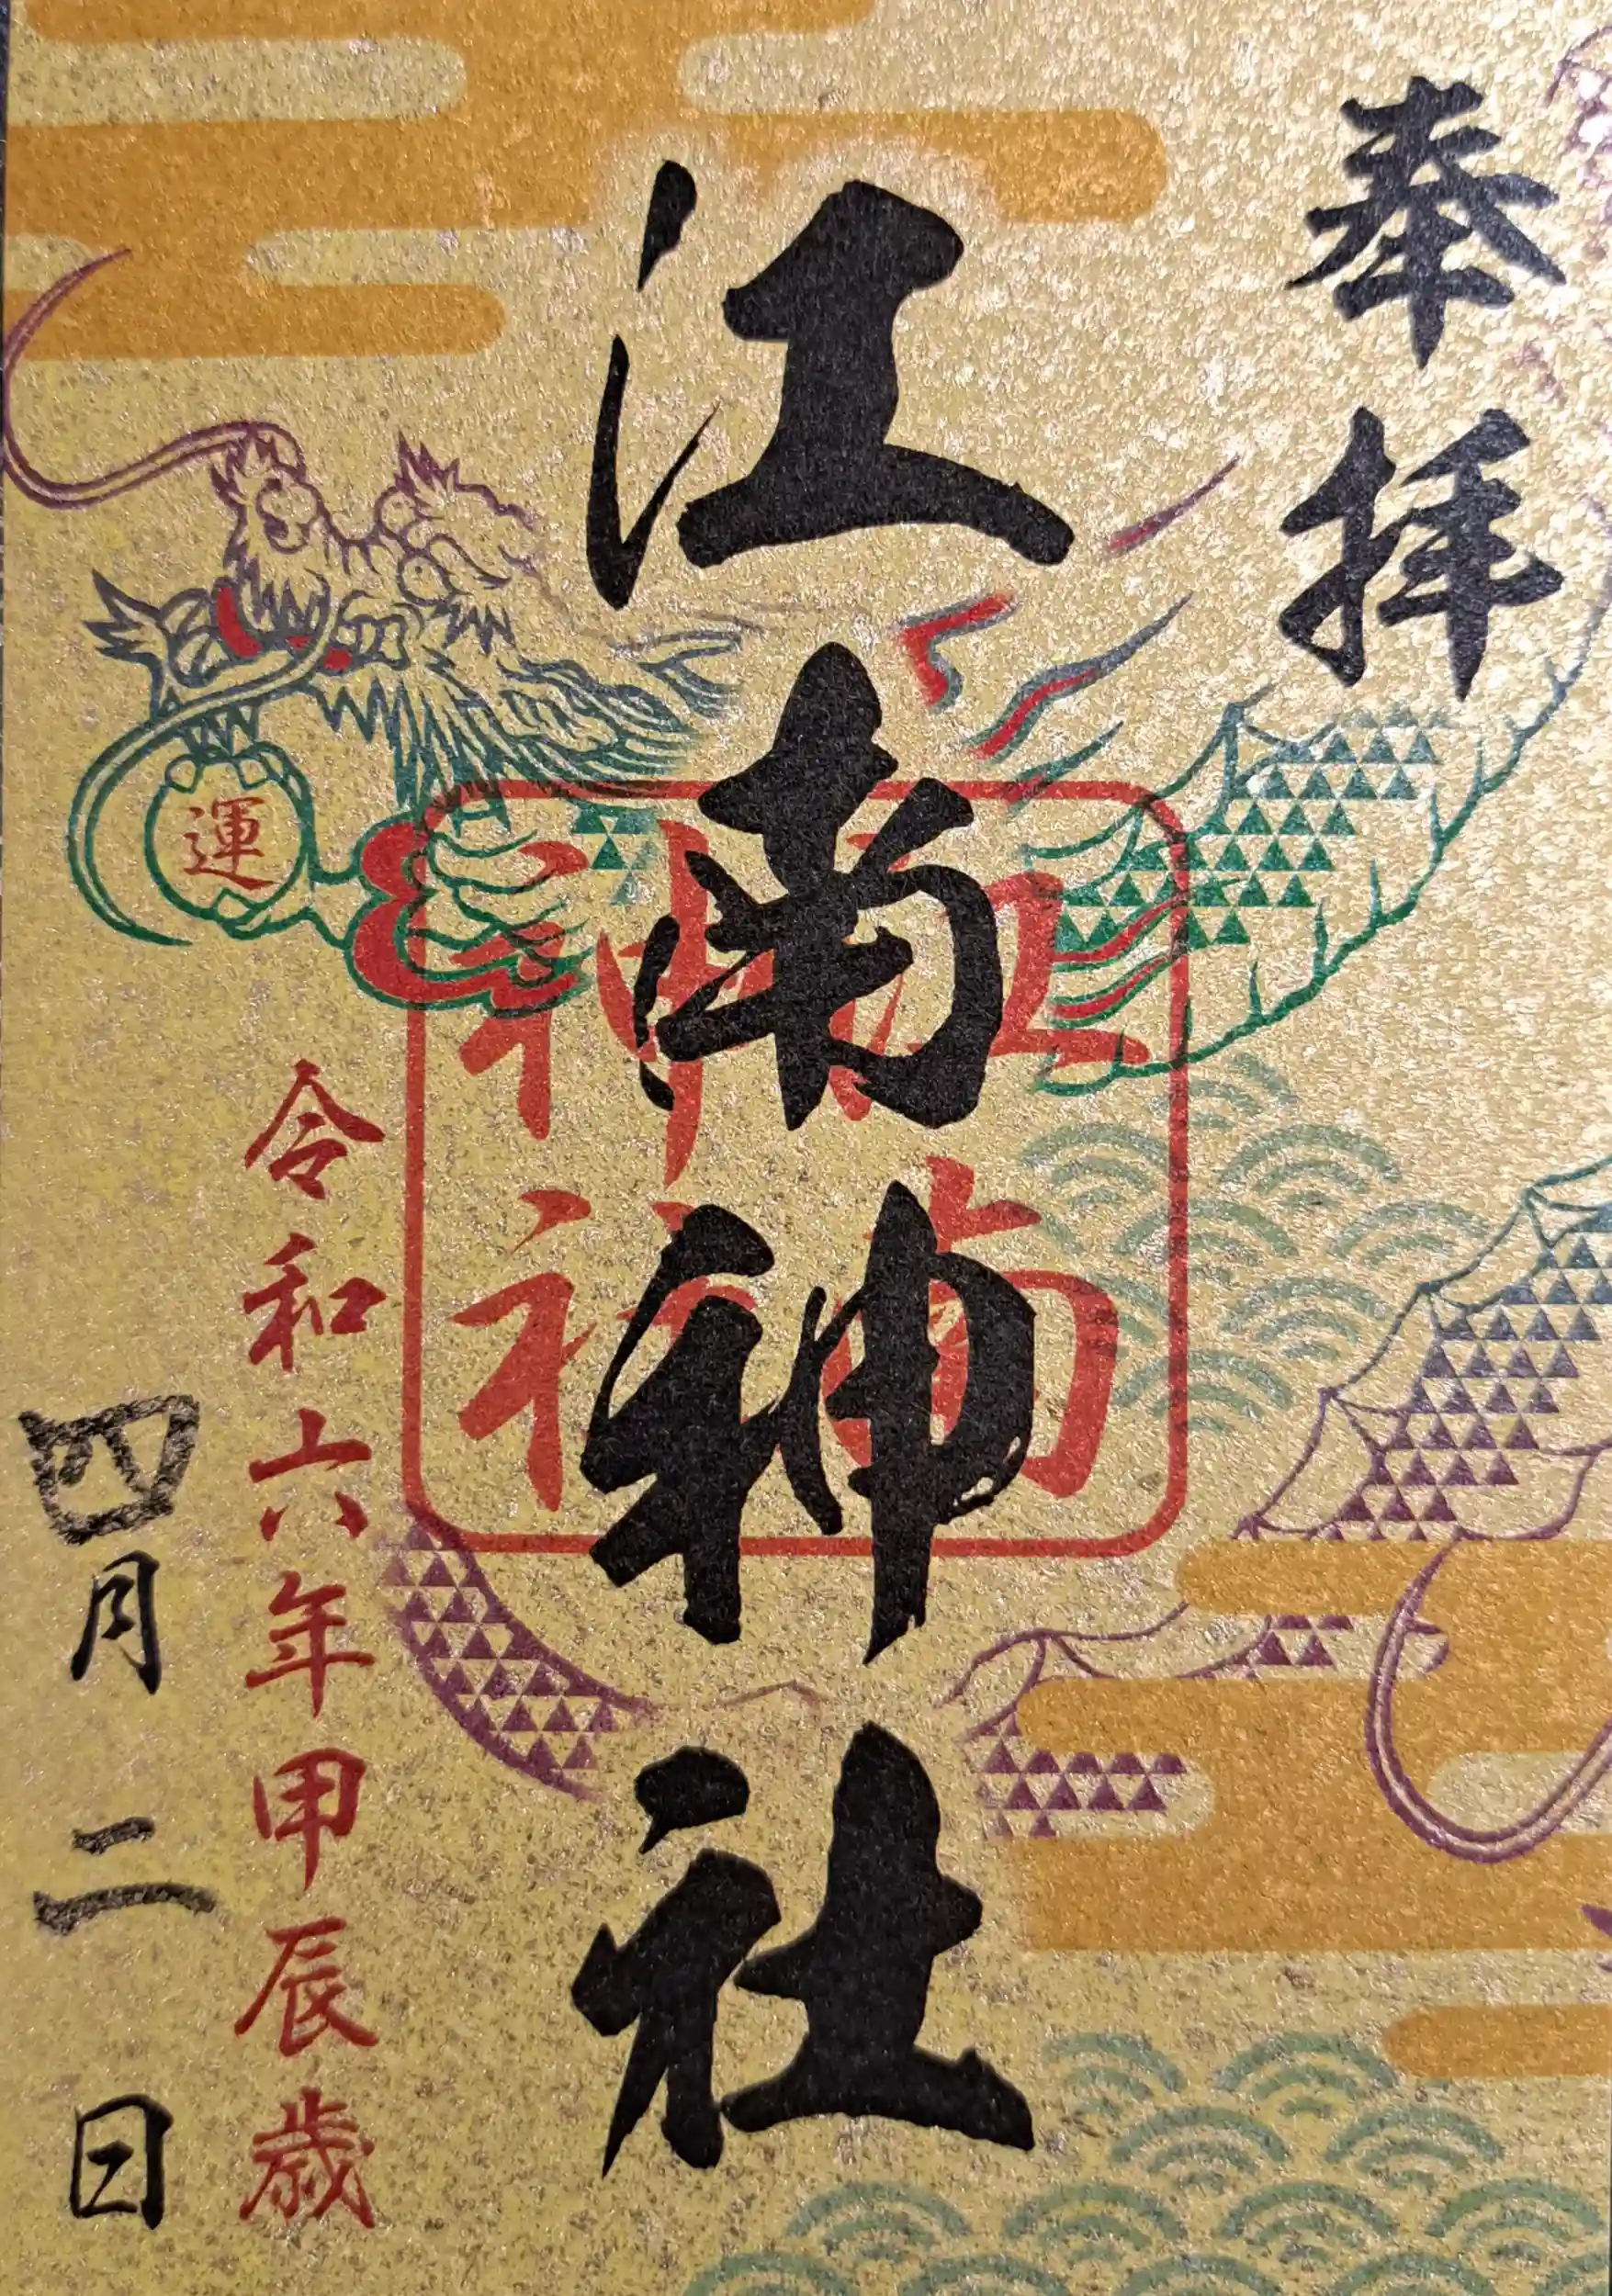 奉拝
江南神社
江南
神社
運
令和六年甲辰歳
四月二日